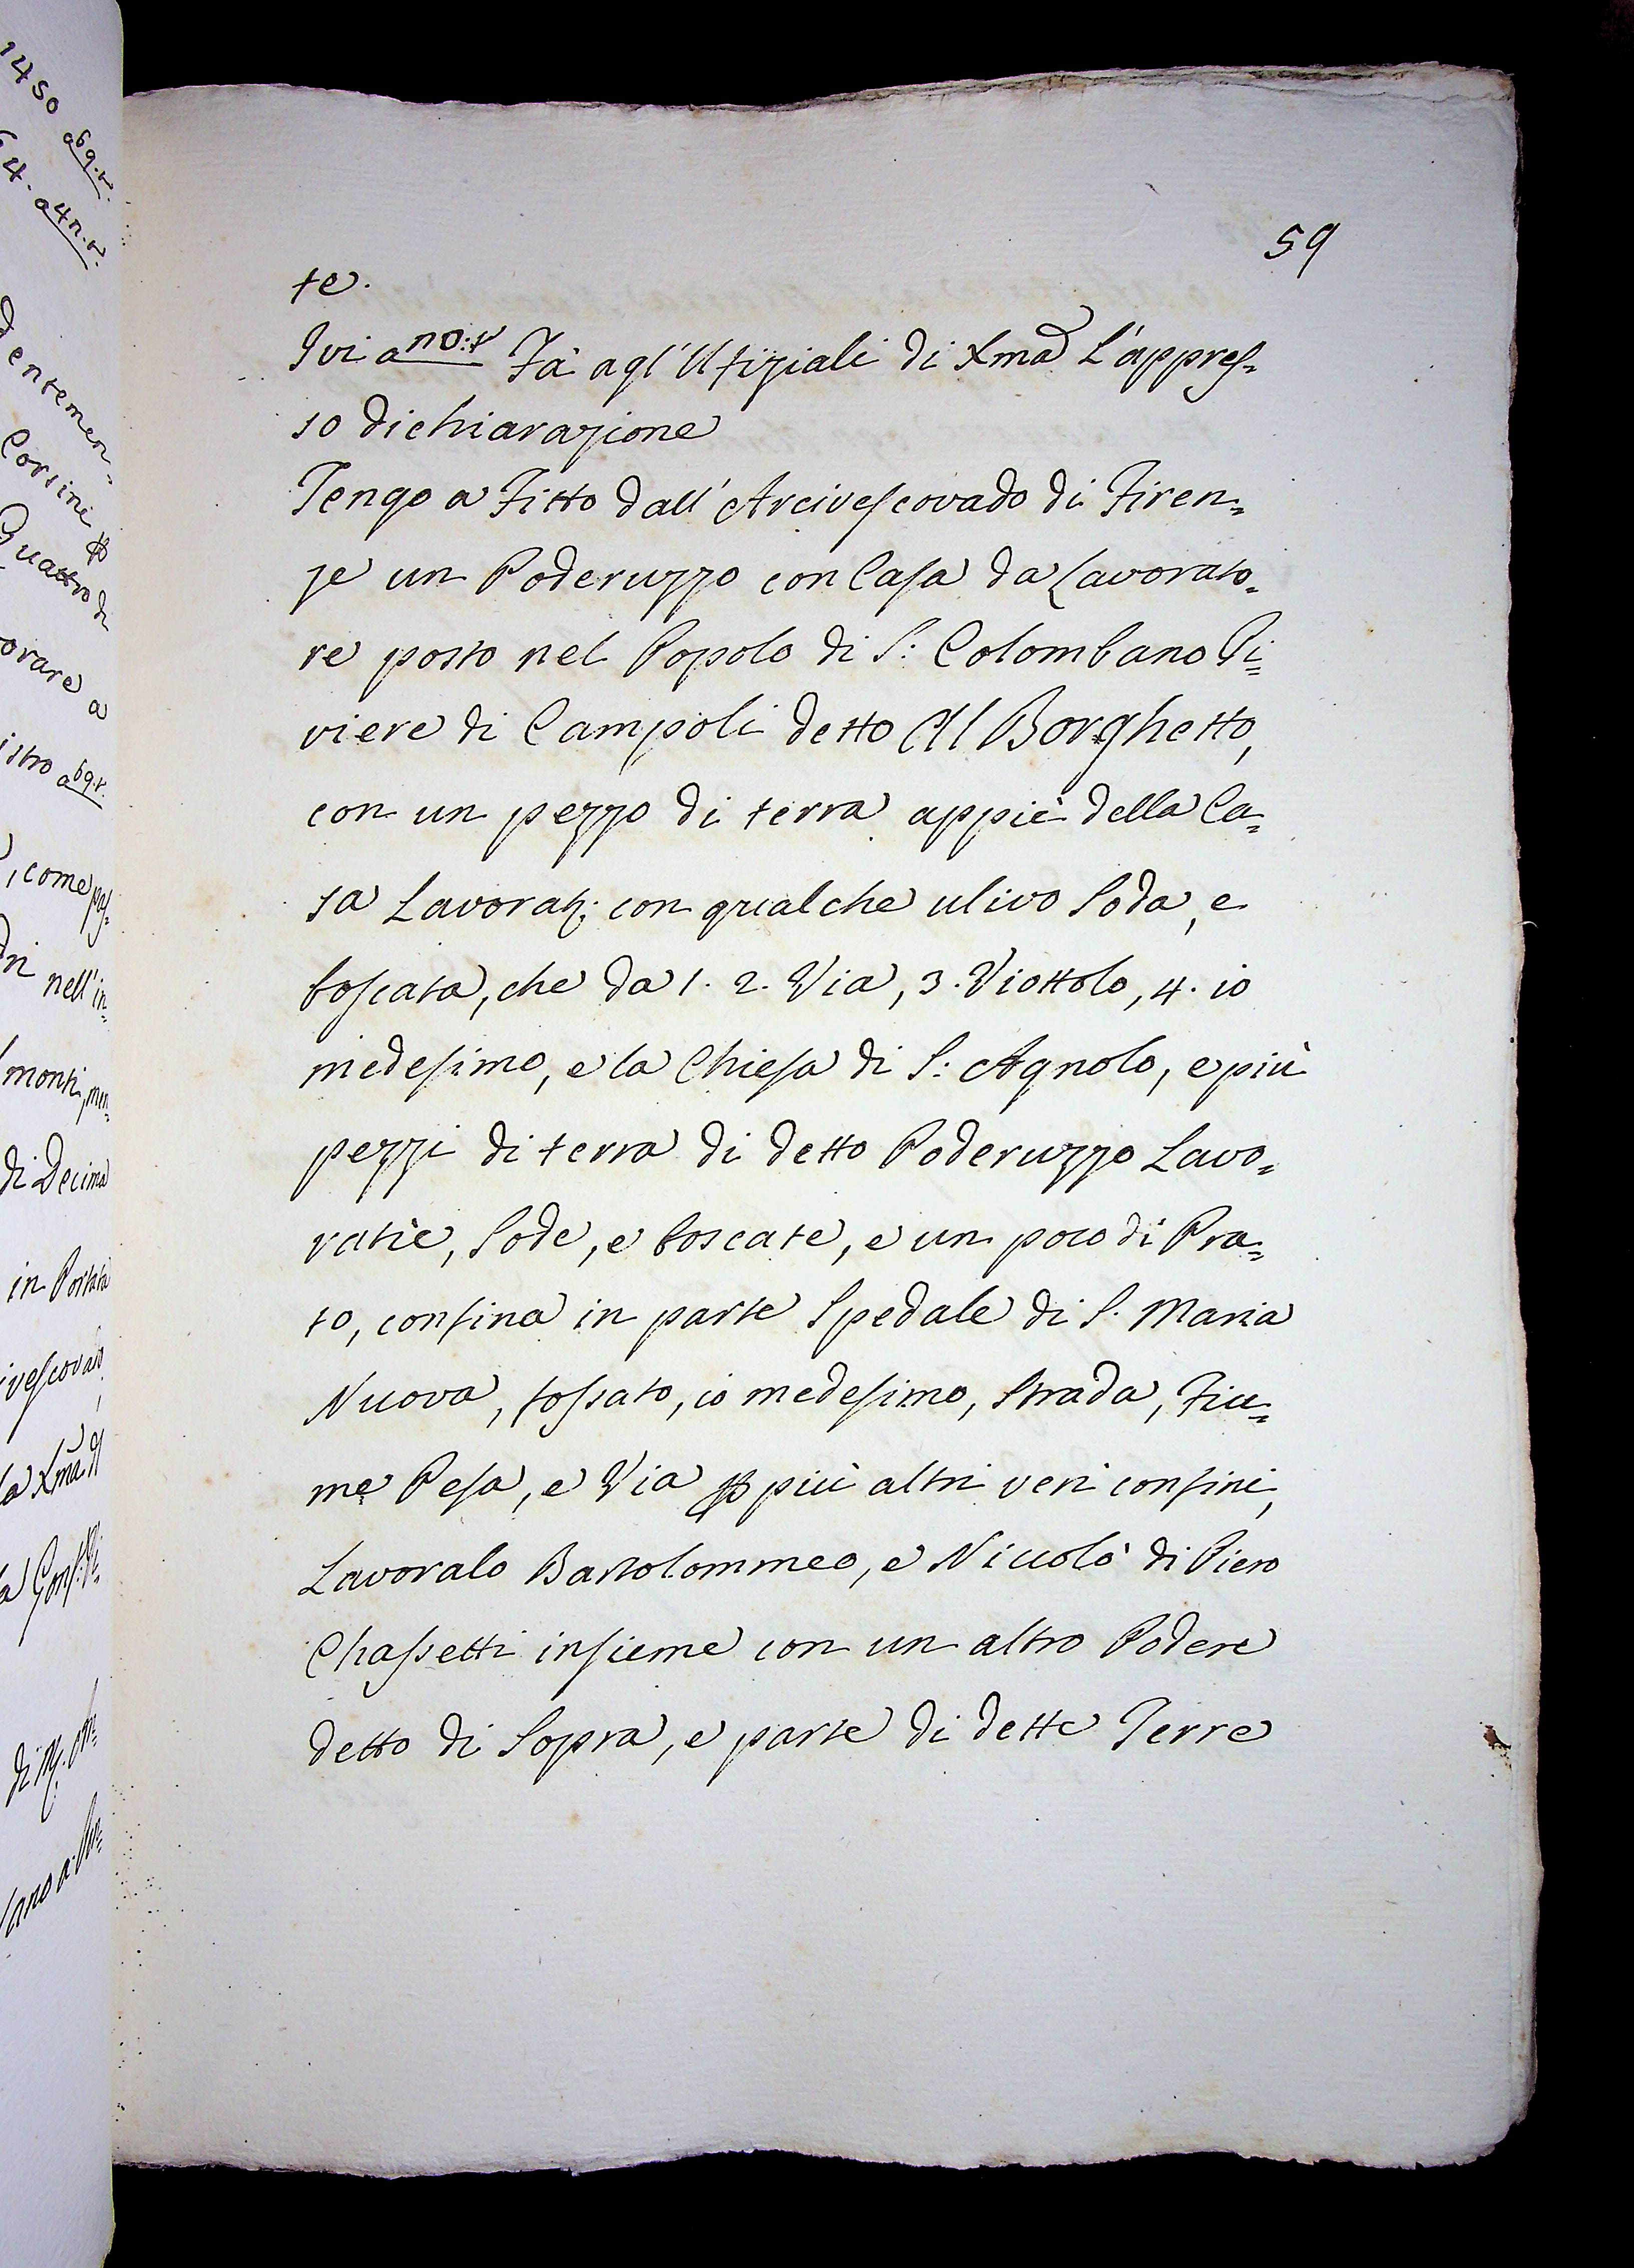 59
te.
Ivi a no:t Fà agl'Ufiziali di Xma L'appres=
so dichiarazione
Tengo a Fitto dall'Arcivescovado di Firen=
ze un Poderuzzo con Casa da Lavorato=
re posto nel Popolo di S: Colombano Pi=
viere di Campoli detto Al Borghetto,
con un pezzo di terra appiè della Ca=
sa con qualche ulivo Soda, e
boscata, che da 1. 2. Via, 3. Viottolo, 4. io
medesimo, e la Chiesa di S: Agnolo, e più
pezzi di terra di detto Poderuzzo Lavo=
ratie, Sode, e boscate, e un poco di Pra=
to, confina in parte Spedale di S. Maria
Nuova, fossato, io medesimo, Strada, Fiu=
me Pesa, e Via più altri veri confini,
Lavoralo Bartolommeo, e Niccolò di Piero
Chassetti insieme con un altro Podere
detto di Sopra, e parte di dette Terre
1450 a 69.t.
64. a 4n.t.
dentemen=
Corsini
Quattro di
orare a
istro a 69.t.
, come pas=
dri nell'in=
monti, men=
di Decima
in Portata
ivescovado,
la Xma